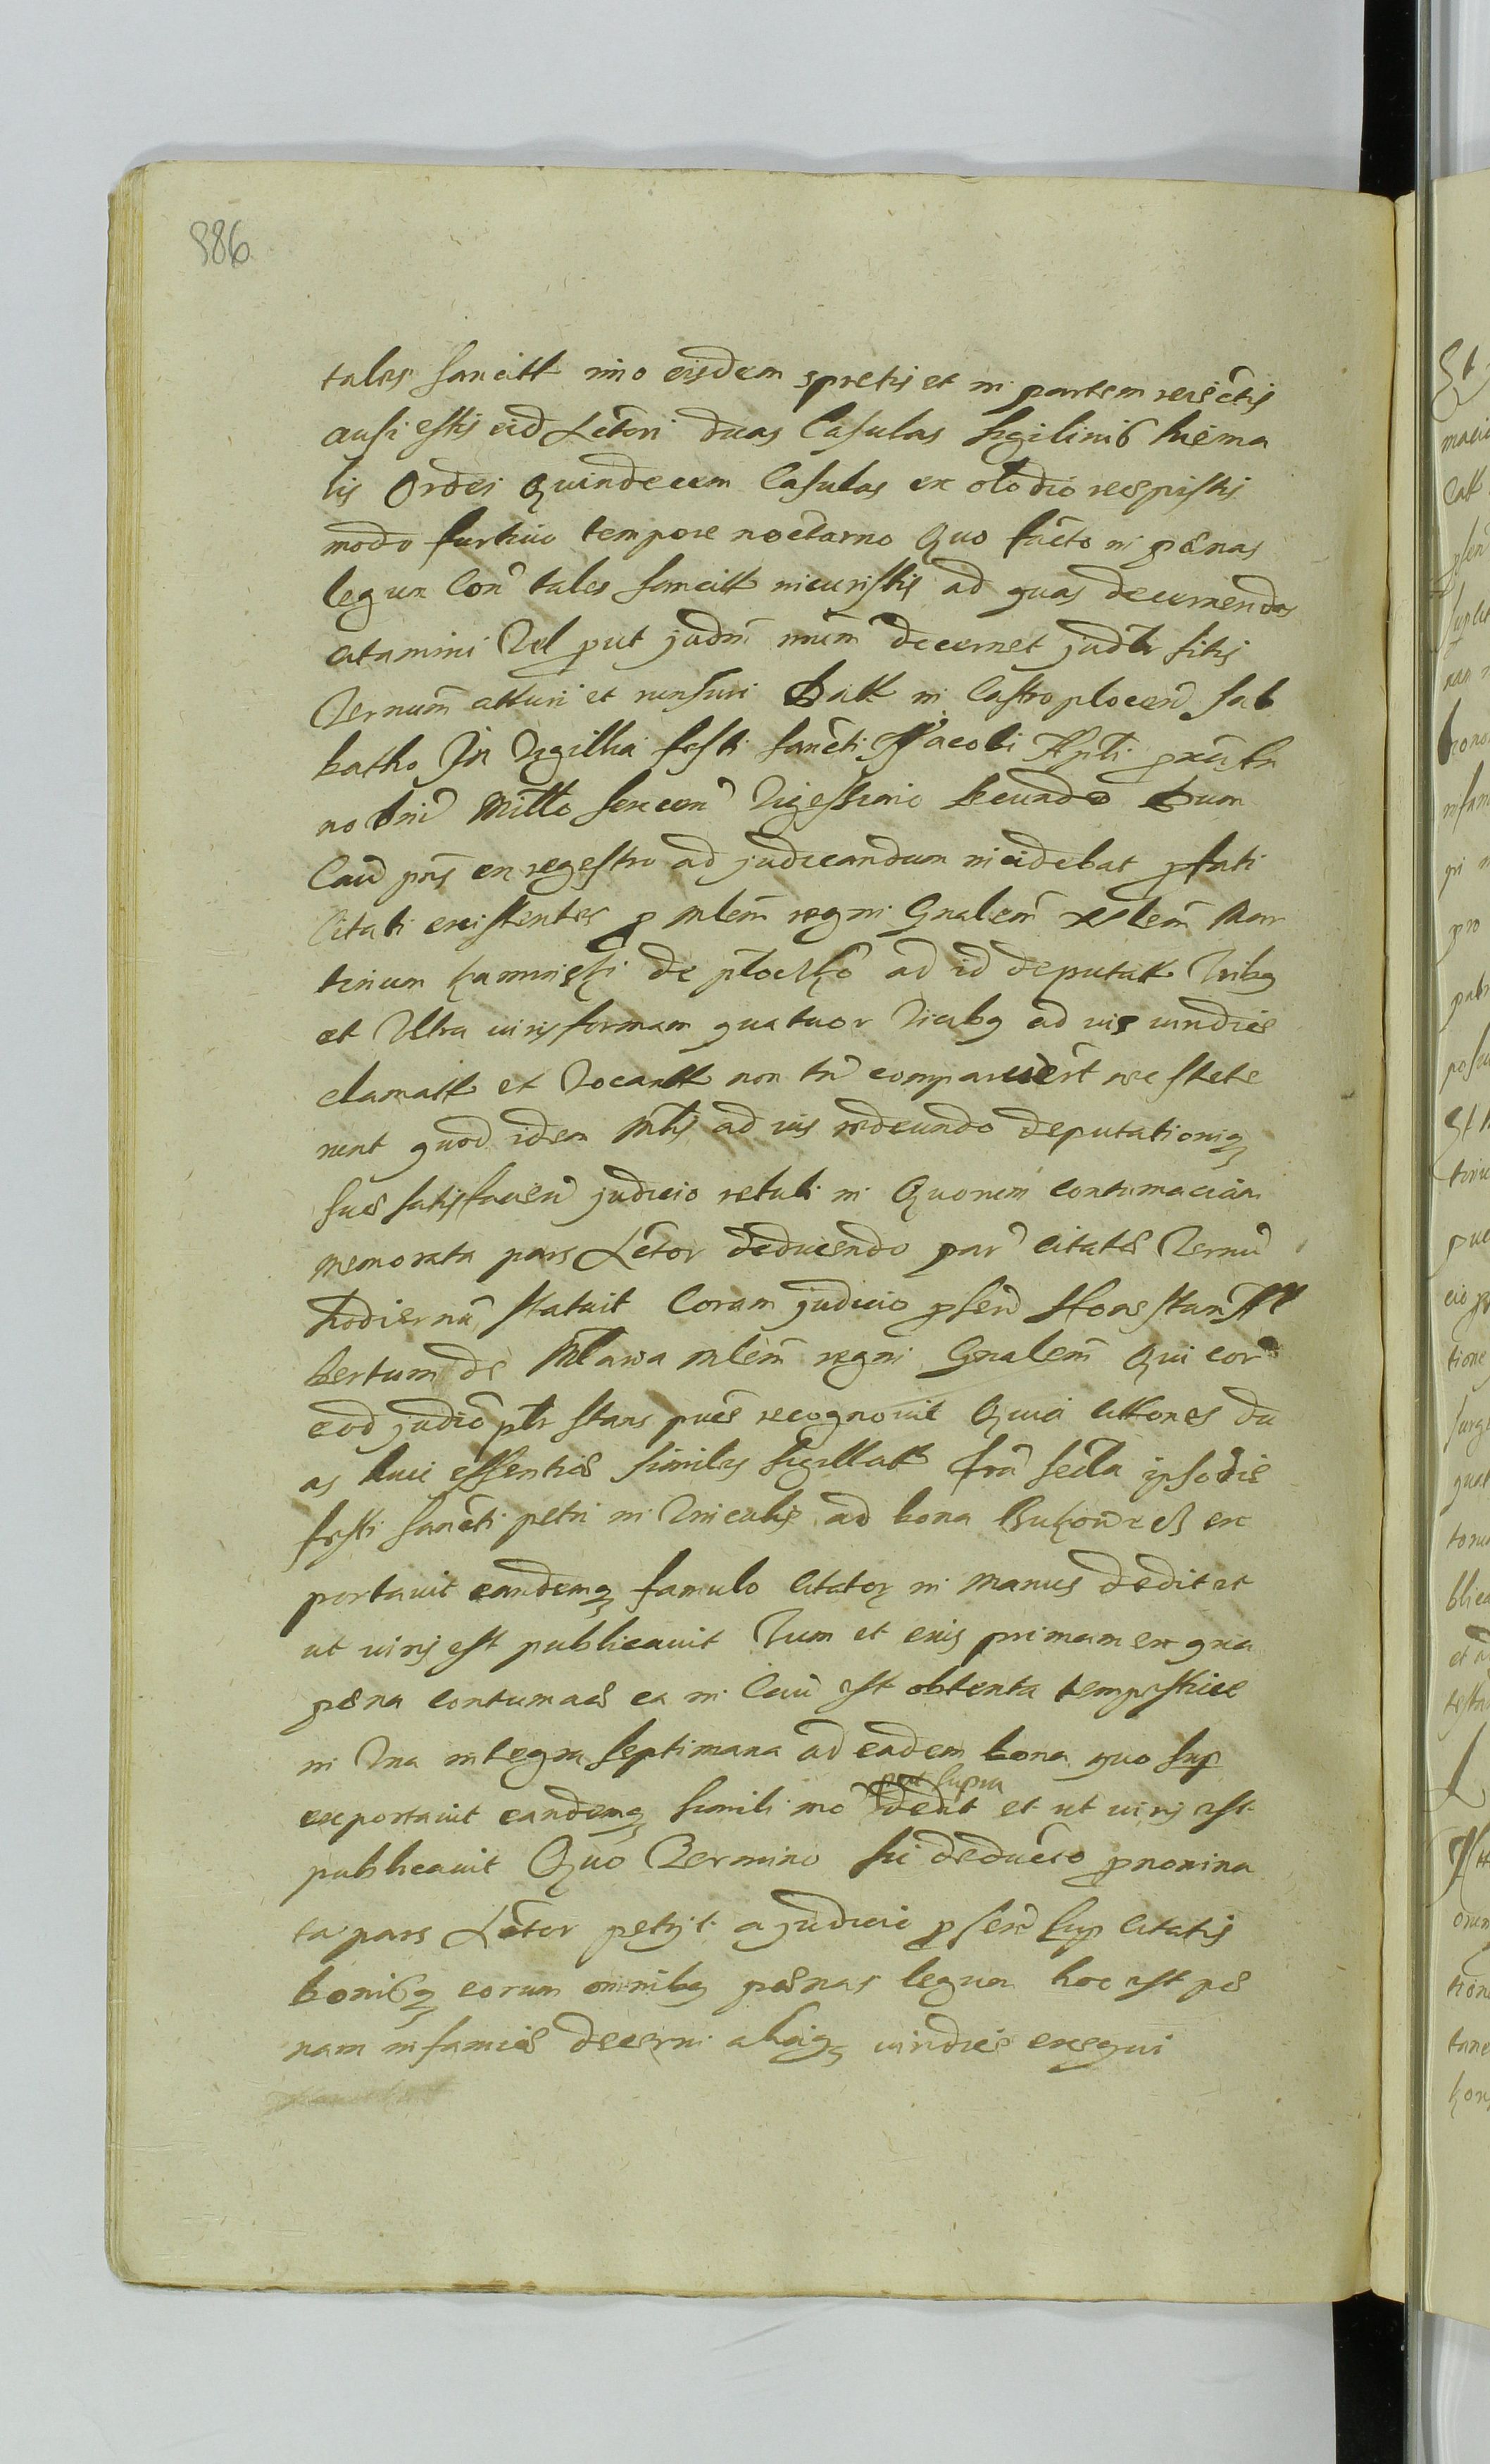 986
tales sancitt imo eisdem spretis et in partem reiectis
ausi estis eid Actori duas Casulas siliginis hiema
lis Ordei Quindecem Casulas ex recepistis
modo furtivo tempore nocturno Quo facto in pænas
legum Con tales sancitt incuristis ad quas decernendas
citamini Vel put judm mum decernet judlr sitis
Vernum atturi et runsuri Datt in Castro plocen Sab
batho In Vigillia festi Sancti Jacobi Apli proxi An
no Dni Millo sexcen Vigessimo Secundo Dum
Caū pns ex regestro ad judicandum incidebat pfati
Citati existentes p Mlem regni Gnalem Mar
tinum Kaminski de plocko ad id deputatt Tribg
et Ultra iuris formam quatuor Vicibg ad ius iundice
clamatt et Vocantt non tn comparuert nec stete
runt quod idem Mlis ad ius redeundo deputationiq
suæ satisfacien judicio retulit in Quorum contumaciam
memorata pars Actor deducendo par citatæ Termin
hodiernu statuit Coram judicio psen Honestum Al
bertum de Mlawa Mlem regni Gnalem Qui cor
eod judio plr stans puæ recognovit Quia Citones du
as huic essentiæ similes sigillatt fra secda ipso die
festi Sancti petri in Vinculis ad bona ex
portavit eandemq famulo Citator in manus dedit et
ut iuris est publicavit Tum et eius primam ex gna
pæna contumaciæ ea in Cau est obtenta tempestive
in Una integra septimana ad eadem bona quo sup
put supra
exportavit eandemq simili mo dedit et ut iuris est
publicavit Quo Termino sic deducto pnomina
ta pars Actor petijt a judicio psen Sup Citatis
bonisq eorum omnibg pænas legum hoc est pæ
nam infamiæ decerni aliasq iuridice exequi